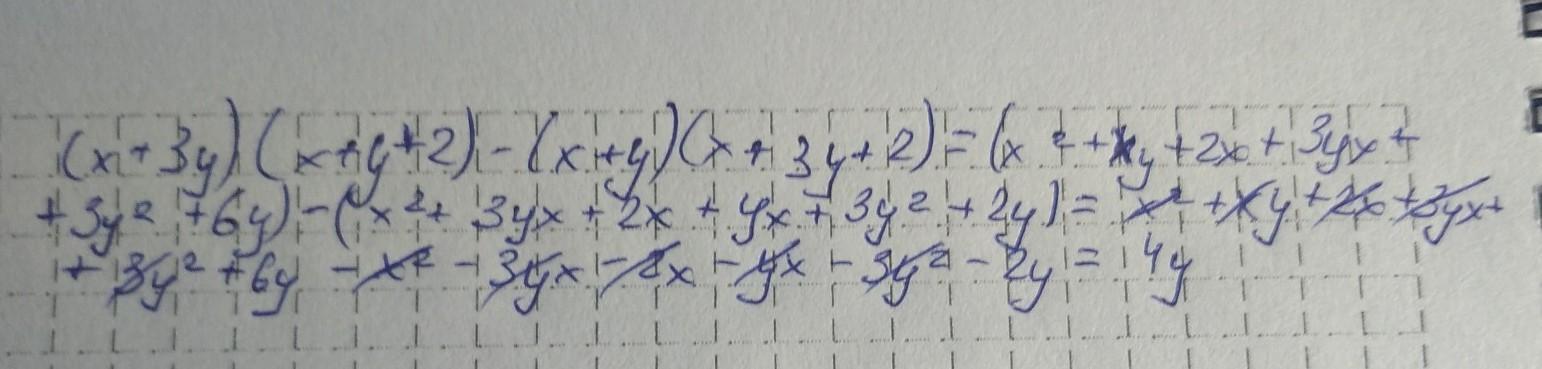 (x+3y)(x+y+2)-(x+y)(x+3y+2)=(x²+xy+2x+3yx+
+3y²+6y)-(x²+3yx+2x+yx+3y²+2y)=x²+xy+2x+3yx+
+3y²+6y-x²-3yx-2x-yx-3y²-2y=4y